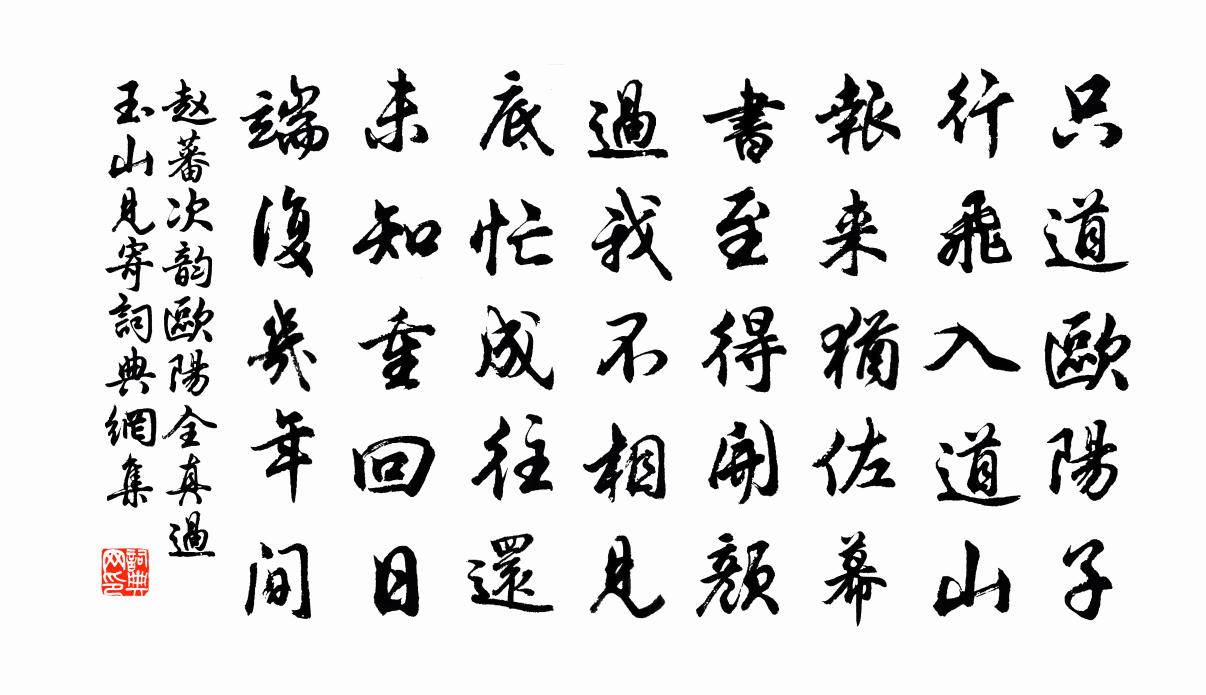 只道歐陽子
行飛入道山
報来猶佐幕
書至得開顏
過我不相見
底忙成往還
未知重回日
端復幾年間
赵蕃次韵歐陽全真過
玉山見寄詞典網集
詞典
网印